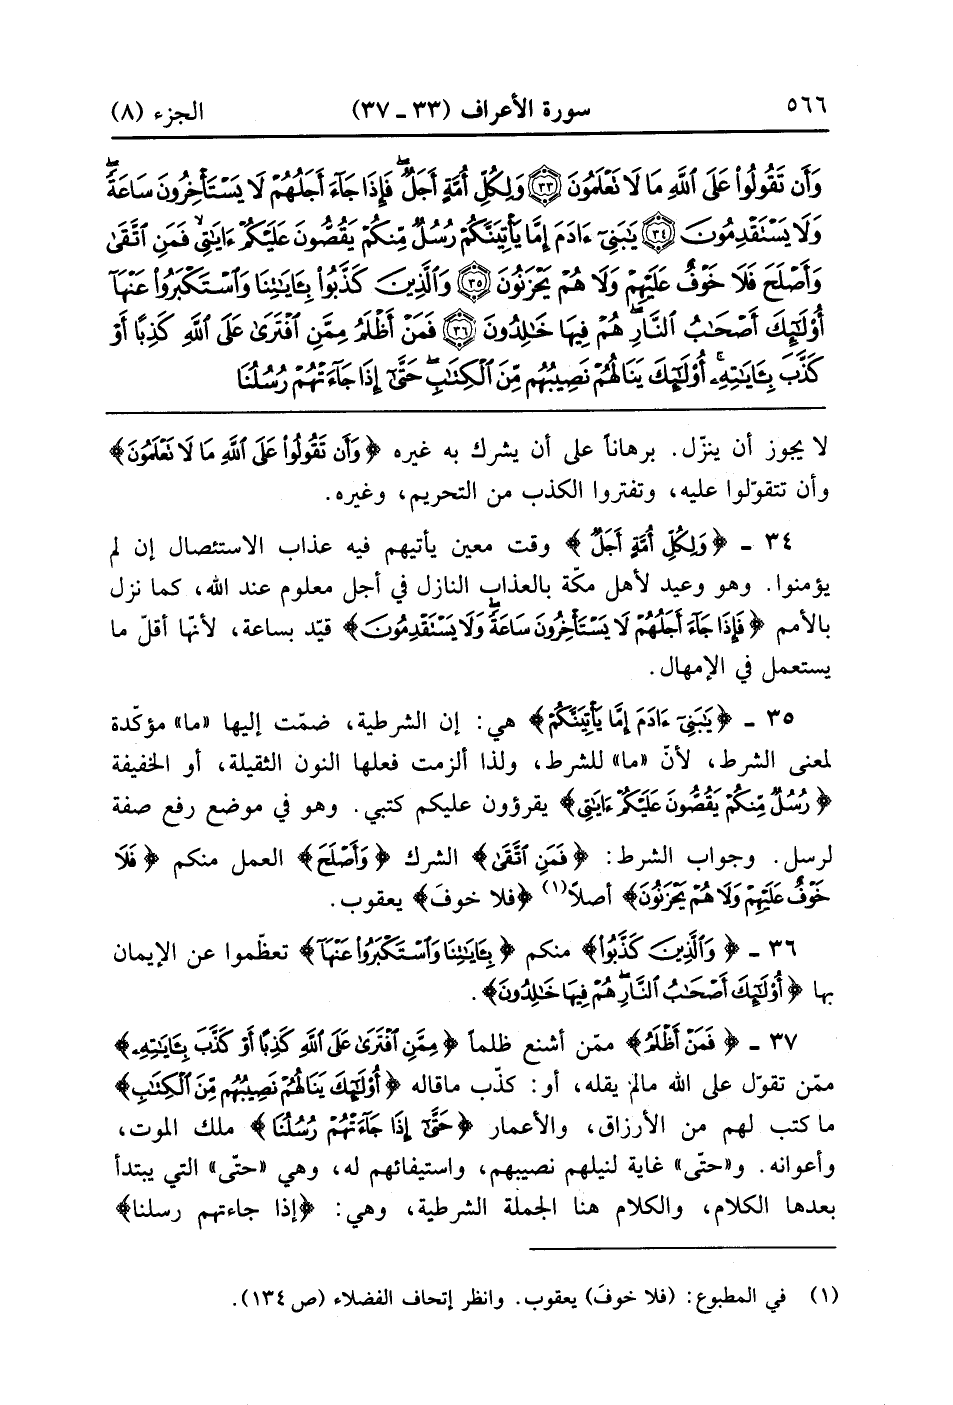 ٥٦٦ سورة الأعراف (٣٣ - ٣٧) الجزء (٨)
وَأَن تَقُولُوا۟ عَلَى ٱللَّهِ مَا لَا تَعْلَمُونَ ﴿٣٣﴾ وَلِكُلِّ أُمَّةٍ أَجَلٌ ۖ فَإِذَا جَآءَ أَجَلُهُمْ لَا يَسْتَأْخِرُونَ سَاعَةً ۖ
وَلَا يَسْتَقْدِمُونَ ﴿٣٤﴾ يَٰبَنِىٓ ءَادَمَ إِمَّا يَأْتِيَنَّكُمْ رُسُلٌ مِّنكُمْ يَقُصُّونَ عَلَيْكُمْ ءَايَٰتِى ۙ فَمَنِ ٱتَّقَىٰ
وَأَصْلَحَ فَلَا خَوْفٌ عَلَيْهِمْ وَلَا هُمْ يَحْزَنُونَ ﴿٣٥﴾ وَٱلَّذِينَ كَذَّبُوا۟ بِـَٔايَٰتِنَا وَٱسْتَكْبَرُوا۟ عَنْهَآ
أُو۟لَٰٓئِكَ أَصْحَٰبُ ٱلنَّارِ ۖ هُمْ فِيهَا خَٰلِدُونَ ﴿٣٦﴾ فَمَنْ أَظْلَمُ مِمَّنِ ٱفْتَرَىٰ عَلَى ٱللَّهِ كَذِبًا أَوْ
كَذَّبَ بِـَٔايَٰتِهِۦٓ ۚ أُو۟لَٰٓئِكَ يَنَالُهُمْ نَصِيبُهُم مِّنَ ٱلْكِتَٰبِ ۖ حَتَّىٰٓ إِذَا جَآءَتْهُمْ رُسُلُنَا
لا يجوز أن ينزّل. برهاناً على أن يشرك به غيره ﴿وَأَن تَقُولُوا۟ عَلَى ٱللَّهِ مَا لَا تَعْلَمُونَ﴾
وأن تتقوّلوا عليه، وتفتروا الكذب من التحريم، وغيره.
٣٤ - ﴿وَلِكُلِّ أُمَّةٍ أَجَلٌ﴾ وقت معين يأتيهم فيه عذاب الاستئصال إن لم
يؤمنوا. وهو وعيد لأهل مكّة بالعذاب النازل في أجل معلوم عند الله، كما نزل
بالأمم ﴿فَإِذَا جَآءَ أَجَلُهُمْ لَا يَسْتَأْخِرُونَ سَاعَةً ۖ وَلَا يَسْتَقْدِمُونَ﴾ قيّد بساعة، لأنّها أقلّ ما
يستعمل في الإمهال.
٣٥ - ﴿يَٰبَنِىٓ ءَادَمَ إِمَّا يَأْتِيَنَّكُمْ﴾ هي: إن الشرطية، ضمّت إليها «ما» مؤكّدة
لمعنى الشرط، لأنّ «ما» للشرط، ولذا ألزمت فعلها النون الثقيلة، أو الخفيفة
﴿رُسُلٌ مِّنكُمْ يَقُصُّونَ عَلَيْكُمْ ءَايَٰتِى﴾ يقرؤون عليكم كتبي. وهو في موضع رفع صفة
لرسل. وجواب الشرط: ﴿فَمَنِ ٱتَّقَىٰ﴾ الشرك ﴿وَأَصْلَحَ﴾ العمل منكم ﴿فَلَا
خَوْفٌ عَلَيْهِمْ وَلَا هُمْ يَحْزَنُونَ﴾ أصلاً(١) ﴿فلا خوفَ﴾ يعقوب.
٣٦ - ﴿وَٱلَّذِينَ كَذَّبُوا۟﴾ منكم ﴿بِـَٔايَٰتِنَا وَٱسْتَكْبَرُوا۟ عَنْهَآ﴾ تعظّموا عن الإيمان
بها ﴿أُو۟لَٰٓئِكَ أَصْحَٰبُ ٱلنَّارِ ۖ هُمْ فِيهَا خَٰلِدُونَ﴾.
٣٧ - ﴿فَمَنْ أَظْلَمُ﴾ ممّن أشنع ظلماً ﴿مِمَّنِ ٱفْتَرَىٰ عَلَى ٱللَّهِ كَذِبًا أَوْ كَذَّبَ بِـَٔايَٰتِهِۦٓ﴾
ممّن تقوّل على الله مالم يقله، أو: كذّب ماقاله ﴿أُو۟لَٰٓئِكَ يَنَالُهُمْ نَصِيبُهُم مِّنَ ٱلْكِتَٰبِ﴾
ما كتب لهم من الأرزاق، والأعمار ﴿حَتَّىٰٓ إِذَا جَآءَتْهُمْ رُسُلُنَا﴾ ملك الموت،
وأعوانه. و«حتّى» غاية لنيلهم نصيبهم، واستيفائهم له، وهي «حتّى» التي يبتدأ
بعدها الكلام، والكلام هنا الجملة الشرطية، وهي: ﴿إذا جاءتهم رسلنا﴾
(١) في المطبوع: (فلا خوفَ) يعقوب. وانظر إتحاف الفضلاء (ص ١٣٤).